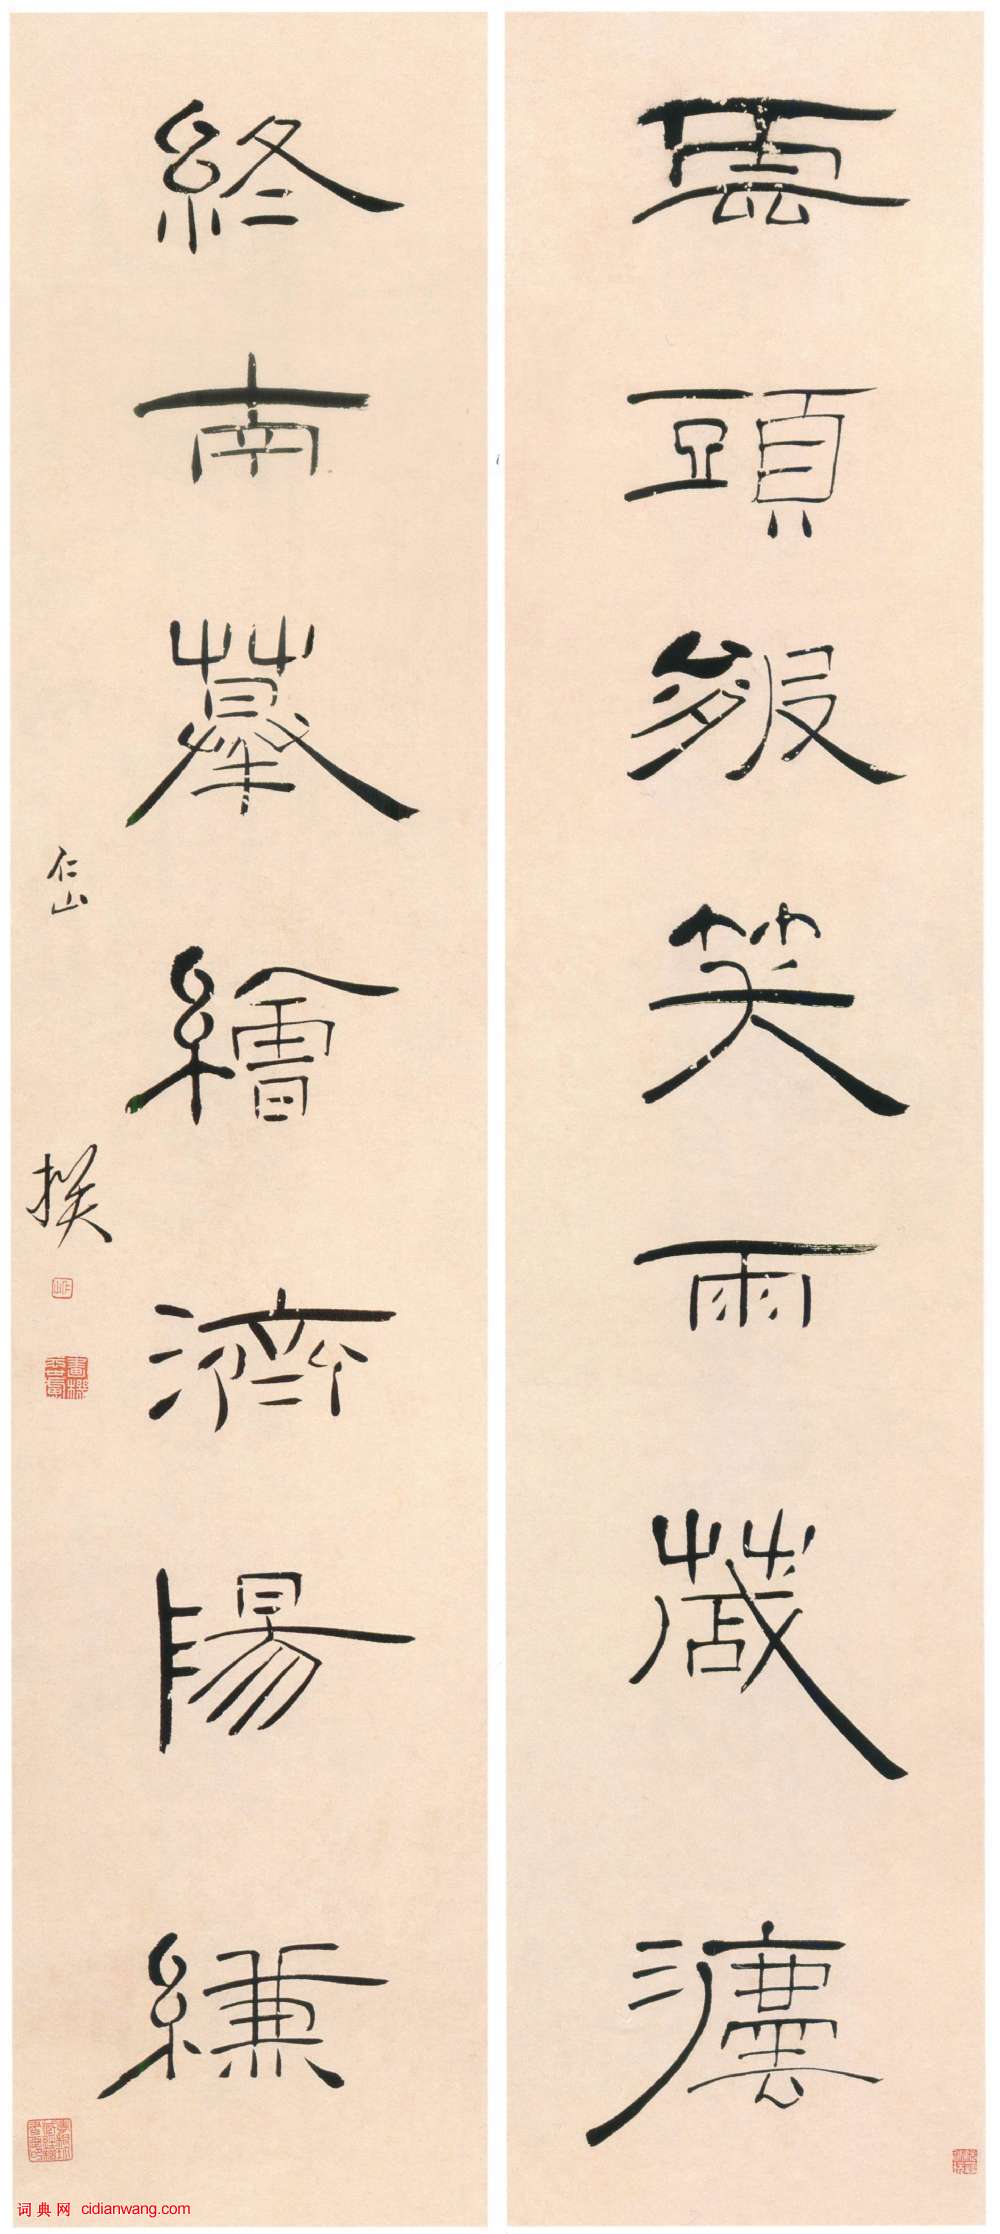 雲頭皴笑雨藏漉
終南摹繪濟陽縑
仁山撰
词典网 cidianwang.com